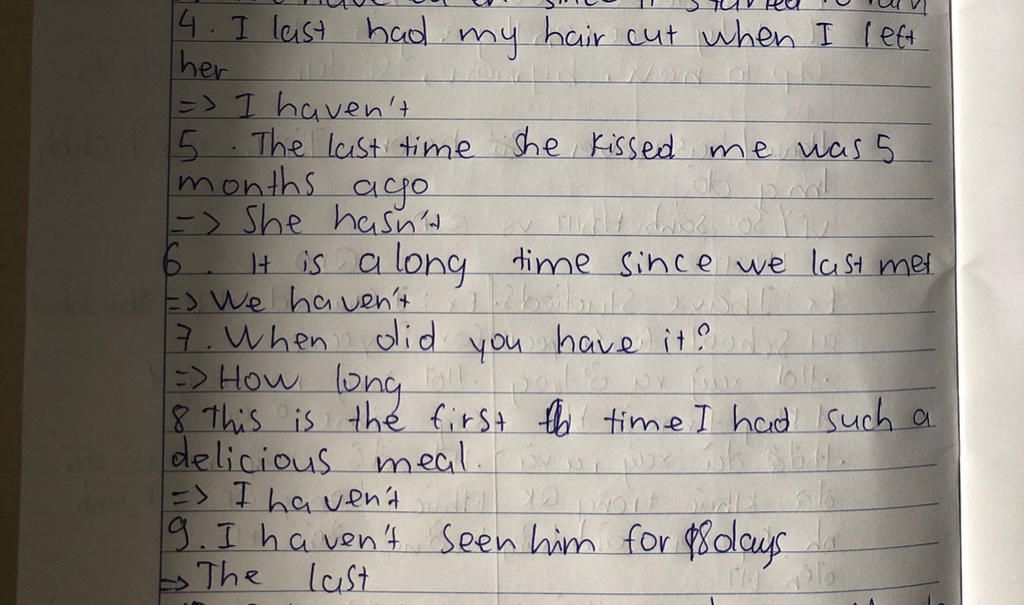 since it started to rain
4. I last had my hair cut when I left
her
=> I haven't
5. The last time she kissed me was 5
months ago
=> She hasn't
6. It is a long time since we last met
=> We haven't
7. When did you have it?
=> How long
8 This is the first time I had such a
delicious meal.
=> I haven't
9. I haven't seen him for 8 days
=> The last